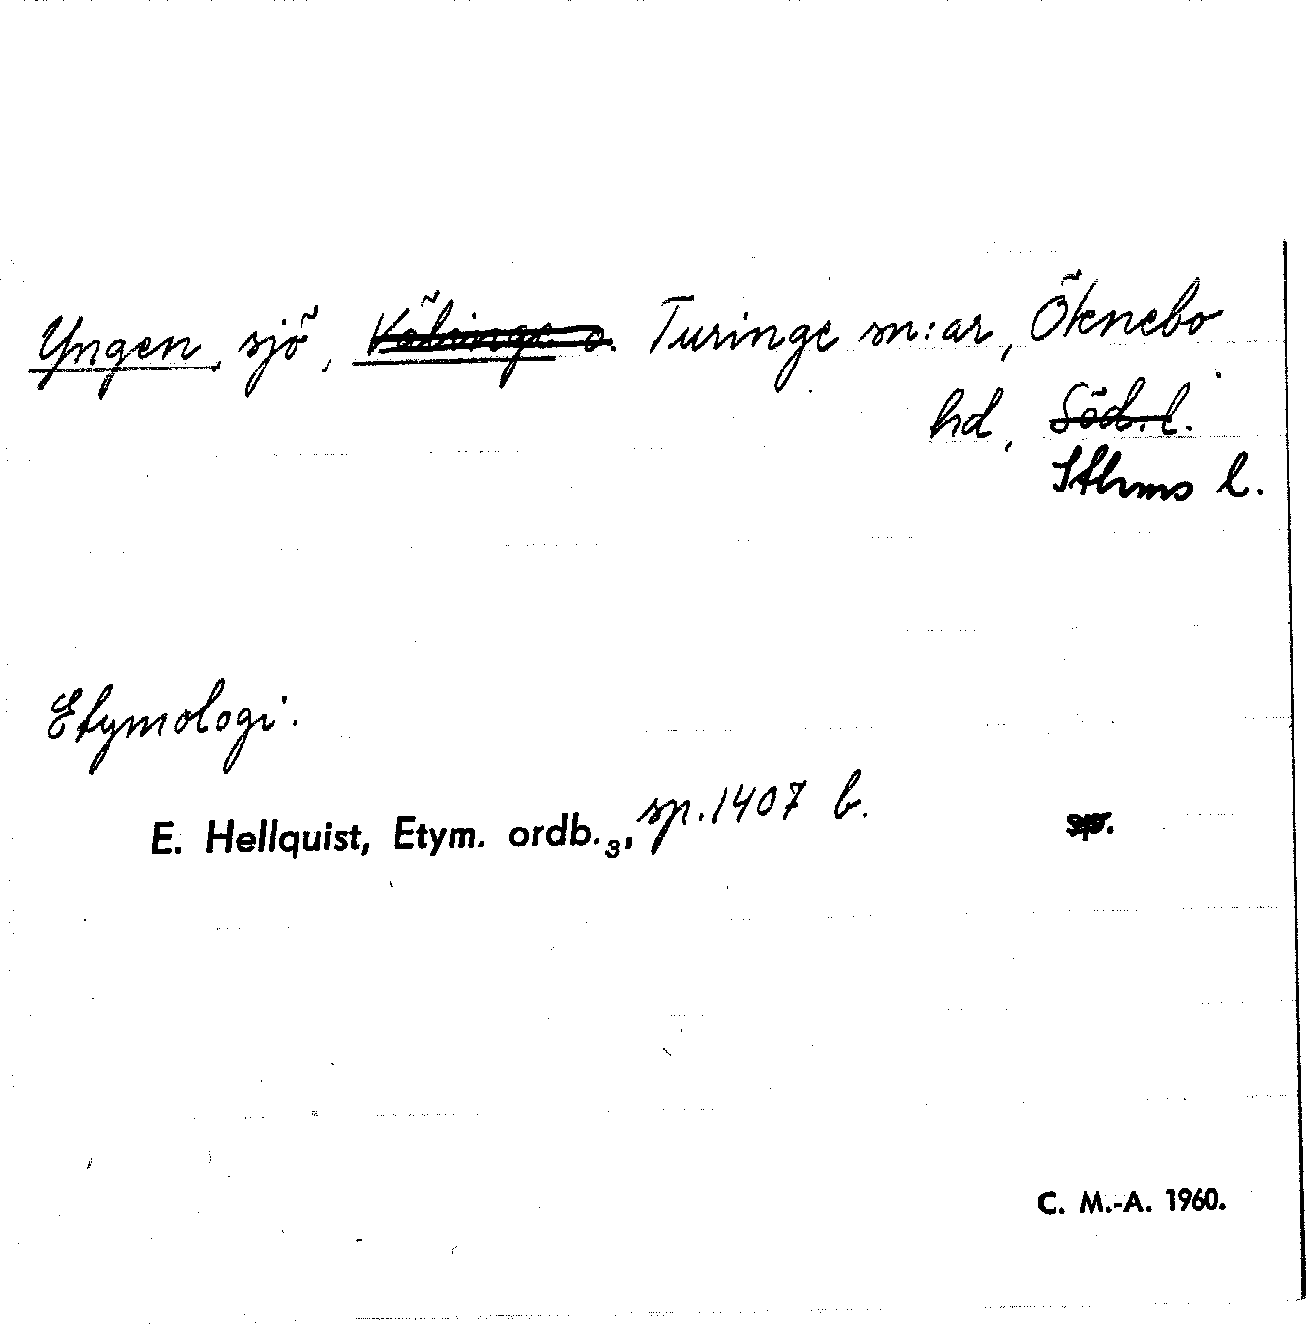 Yngen, sjö, Turinge sn:ar, Öknebo
hd, Söd. l.
Sthms l.
Etymologi.
E. Hellquist, Etym. ordb.3, sp. 1407 b. sp.
C. M.-A. 1960.